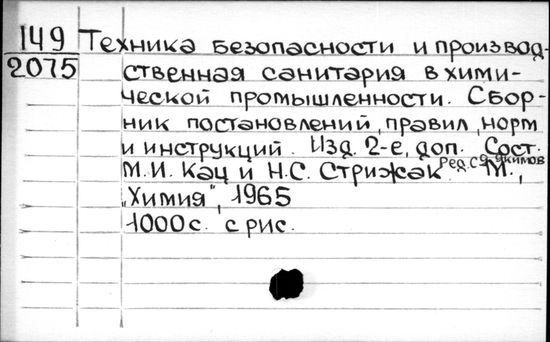 149 Техника безопасности и производ-
2075 ственная санитария в хими-
ческой промышленности. Сбор-
ник постановлений, правил, норм
и инструкций. Изд. 2-е, доп. Сост.
М.И. Кац и Н.С. Стрижак. Ред. М.,
„Химия", 1965
1000 с. с рис.